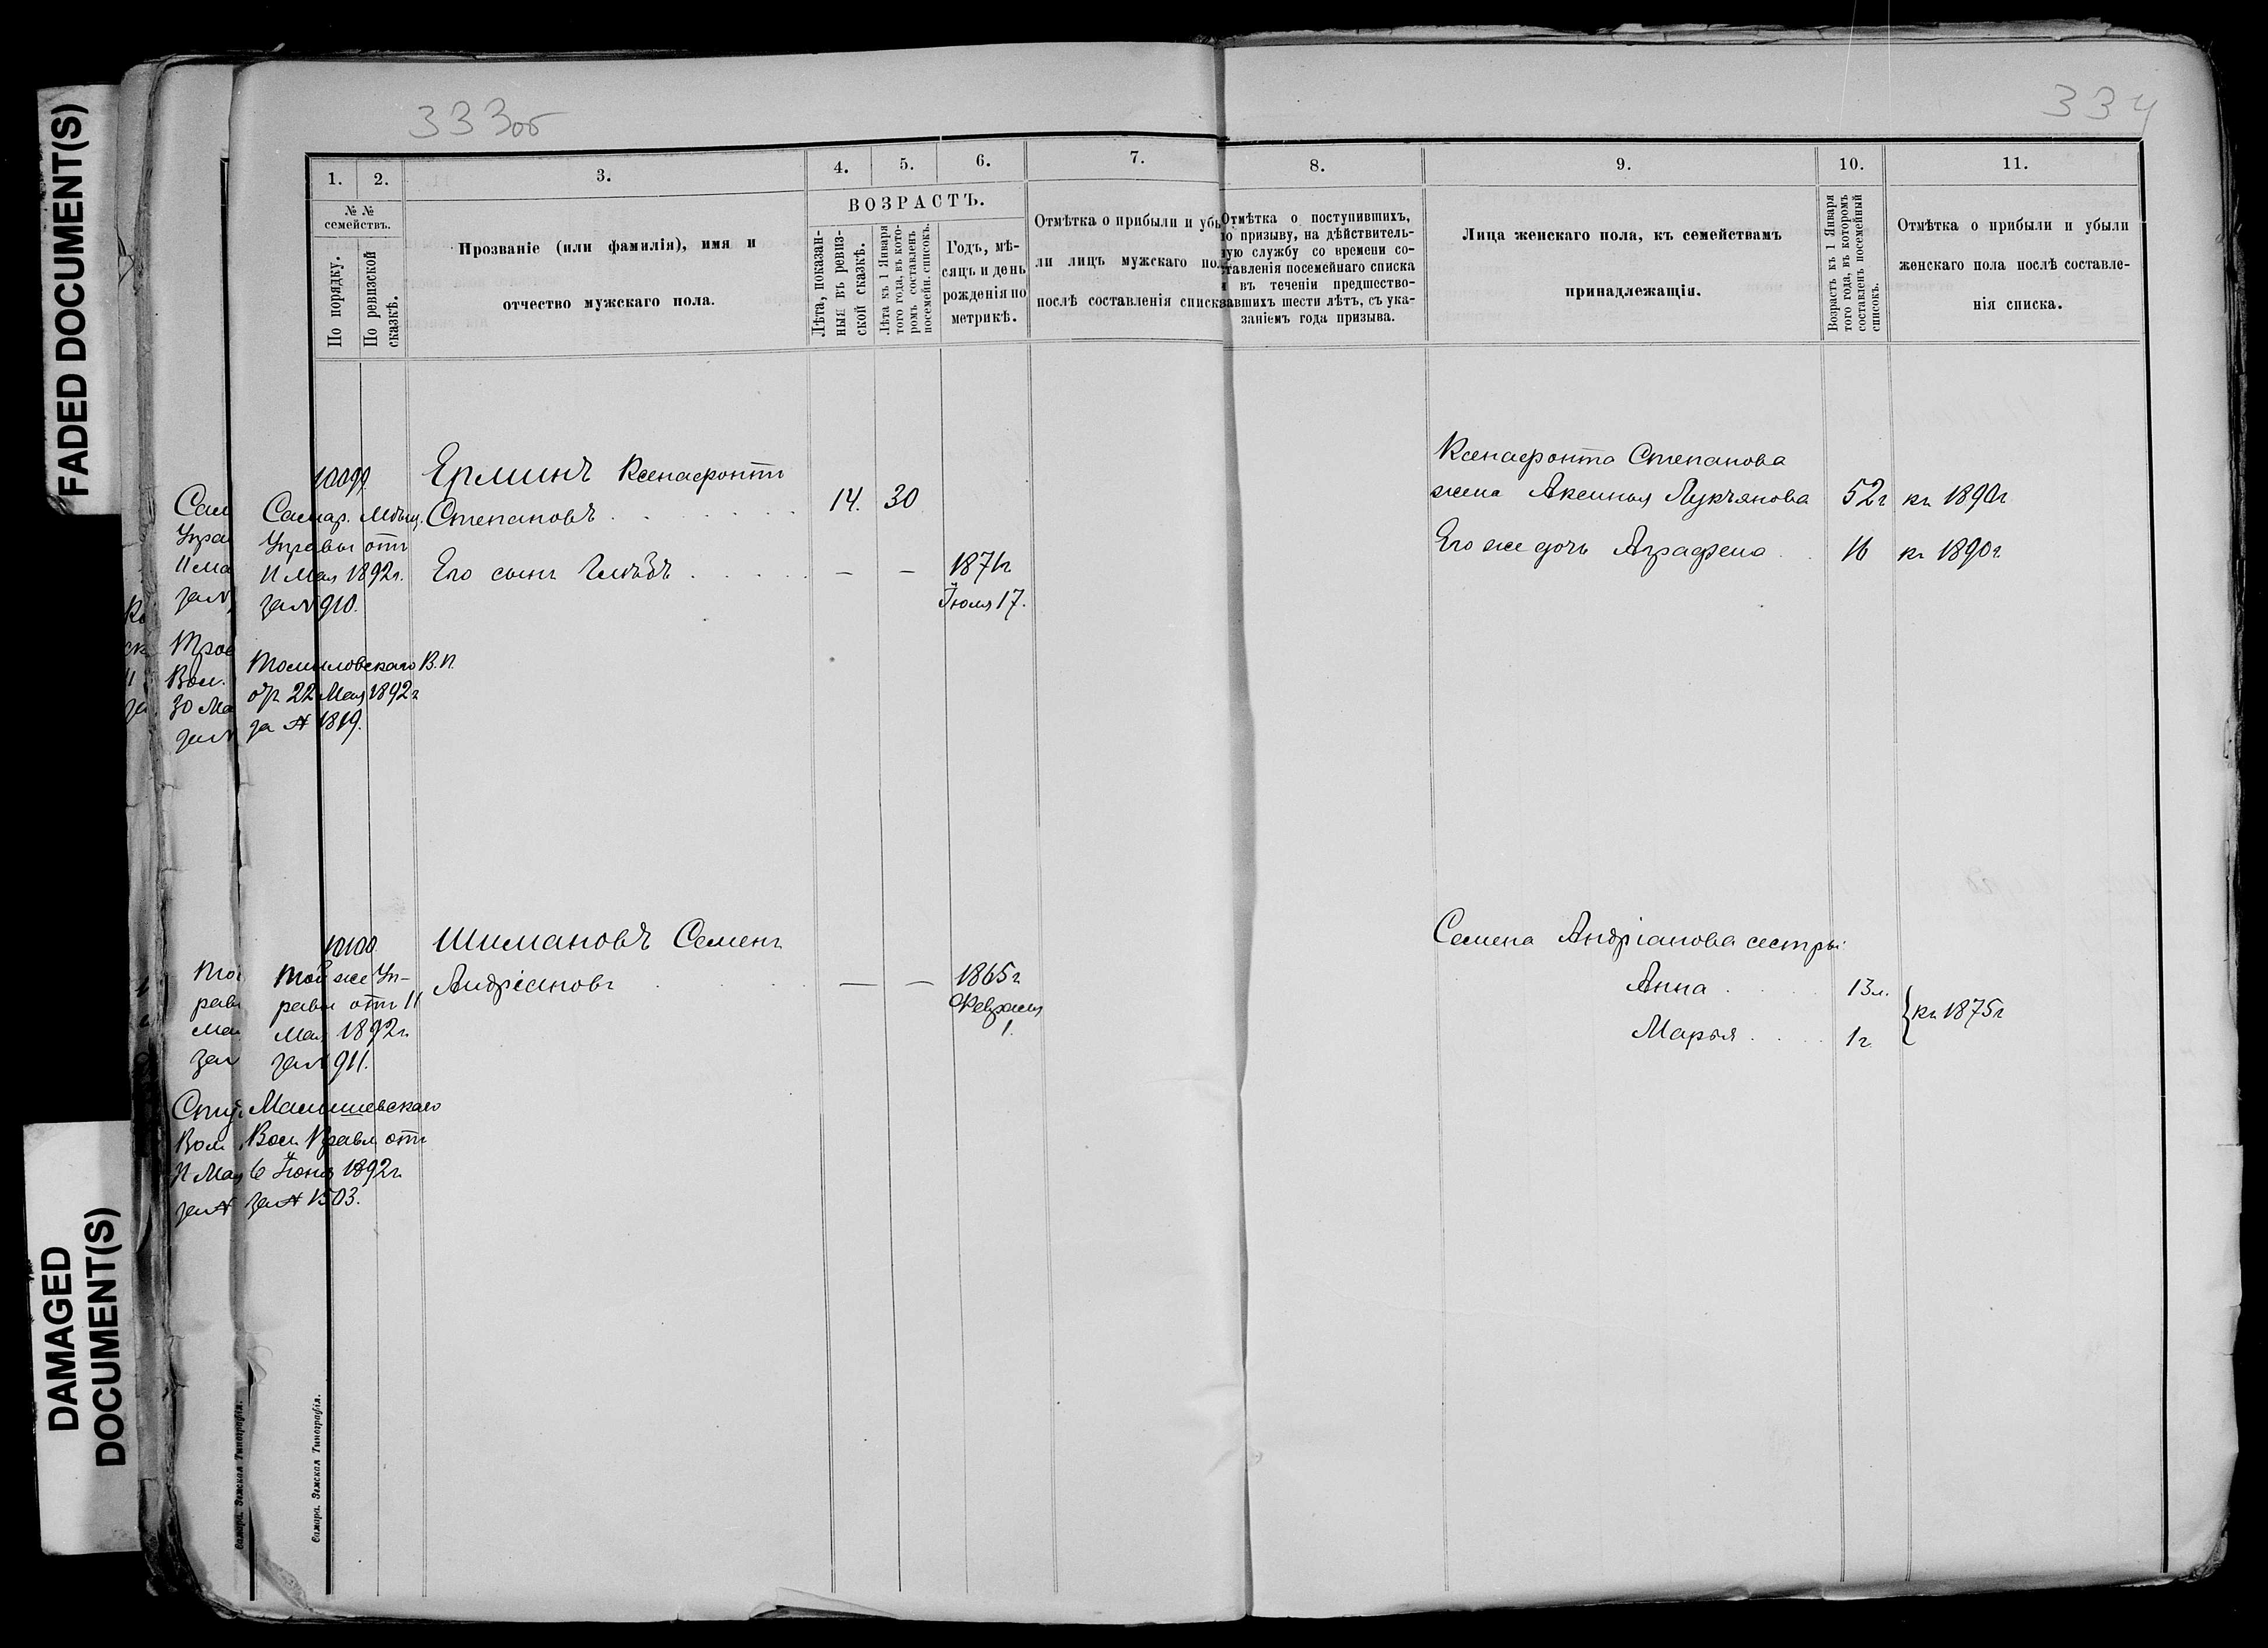 FADED DOCUMENT(S)
DAMAGED
DOCUMENT(S)
333об
334
1.
2.
3.
4.
5.
6.
7.
8.
9.
10.
11.
№ №
семействъ.
По порядку.
По ревизской
сказкѣ.
Прозваніе (или фамилія), имя и
отчество мужскаго пола.
ВОЗРАСТЪ.
Лѣта, показан-
ныя въ ревиз-
ской сказкѣ.
Лѣта къ 1 Января
того года, въ кото-
ромъ составленъ
посемейн. списокъ.
Годъ, мѣ-
сяцъ и день
рожденія по
метрикѣ.
Отмѣтка о прибыли и убы
ли лицъ мужскаго пол
послѣ составленія списка
Отмѣтка о поступившихъ,
по призыву, на дѣйствитель-
ную службу со времени со-
ставленія посемейнаго списка
и въ теченіи предшество-
вавшихъ шести лѣтъ, съ ука-
заніемъ года призыва.
Лица женскаго пола, къ семействамъ
принадлежащія.
Возрастъ къ 1 Января
того года, въ которомъ
составленъ посемейный
списокъ.
Отмѣтка о прибыли и убыли
женскаго пола послѣ составле-
нія списка.
10099
Ерминъ Ксенафонтъ
Степановъ 14. 30
Его сынъ Глѣбъ — — 1871г
Іюля 17.
Самар. Мѣщ.
Управы отъ
11 Мая 1892г.
за № 910.
Томыловскаго В. П.
отъ 22 Мая 1892г
за № 1819.
Ксенафонта Степанова
жена Аксинья Лукъянова 52г къ 1890г
Его же дочь Аграфена 16 къ 1890г.
10100
Шимановъ Семенъ
Андріановъ — — 1865г
Февраля
1.
Той же Уп-
равы отъ 11
Мая 1892г.
за № 911.
Малышевскаго
Вол. Правл отъ
6 Іюня 1892г.
за № 1503.
Семена Андріанова сестры
Анна 13л.
Марья 1г.
къ 1875г
Сам
Упра
11 ма
за №
Вол.
30 Ма
за №
Той
равы
Мая
за
Вол
11 Мая
за №
Самара. Земская Типографія.
Самара. Земская Типографія.